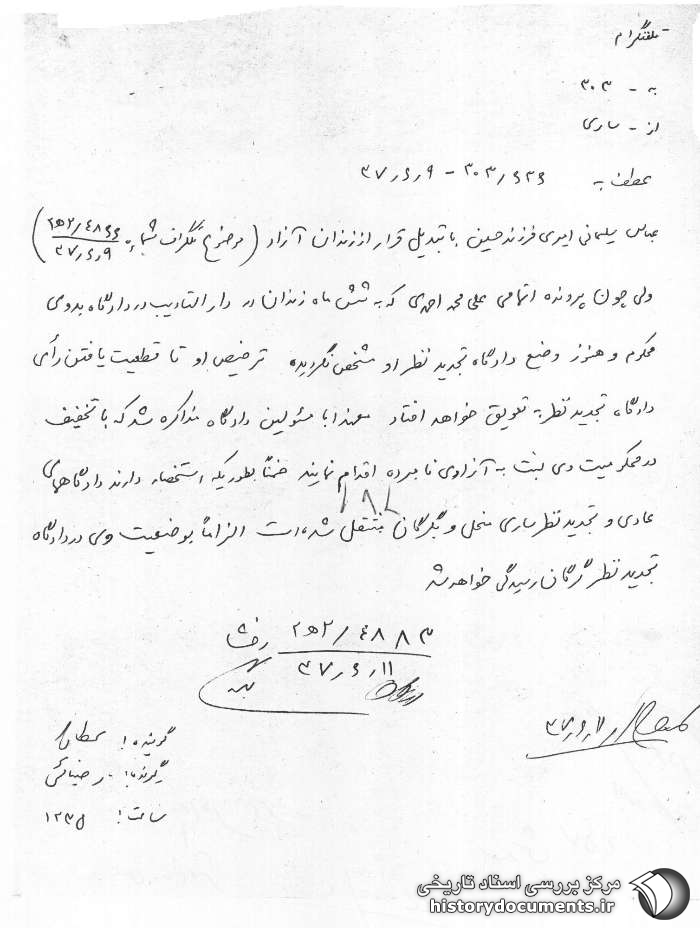 تلفنگرام
به - ۳۰۳
از - ساری
عطف به ۳۰۳/۶۳۶ - ۳۷/۶/۹
عباس سلمانی امیری فرزند حسین با تبدیل قرار از زندان آزاد (موضوع تلگراف شماره
۳۷/۶/۹
ولی چون پرونده اتهامی علی محمد احمدی که به شش ماه زندان در دارالتادیب در دادگاه بدوی
محکوم و هنوز وضع دادگاه تجدید نظر او مشخص نگردیده ترخیص او تا قطعیت یافتن رأی
دادگاه تجدید نظر به تعویق خواهد افتاد معهذا با مسئولین دادگاه مذاکره شد که با تخفیف
در محکومیت وی نسبت به آزادی نامبرده اقدام نمایند ضمناً بطوریکه استحضار دارند دادگاههای
عادی و تجدید نظر ساری منحل و بگرگان منتقل شده است الزاماً بوضعیت وی در دادگاه
تجدید نظر گرگان رسیدگی خواهد شد
۲ﻫ۲/۴۸۸۳
۳۷/۶/۱۱
۳۷/۶/۱۱
گوینده: عطار
گیرنده: رضائی
ساعت: ۱۲۳۵
مرکز بررسی اسناد تاریخی
historydocuments.ir